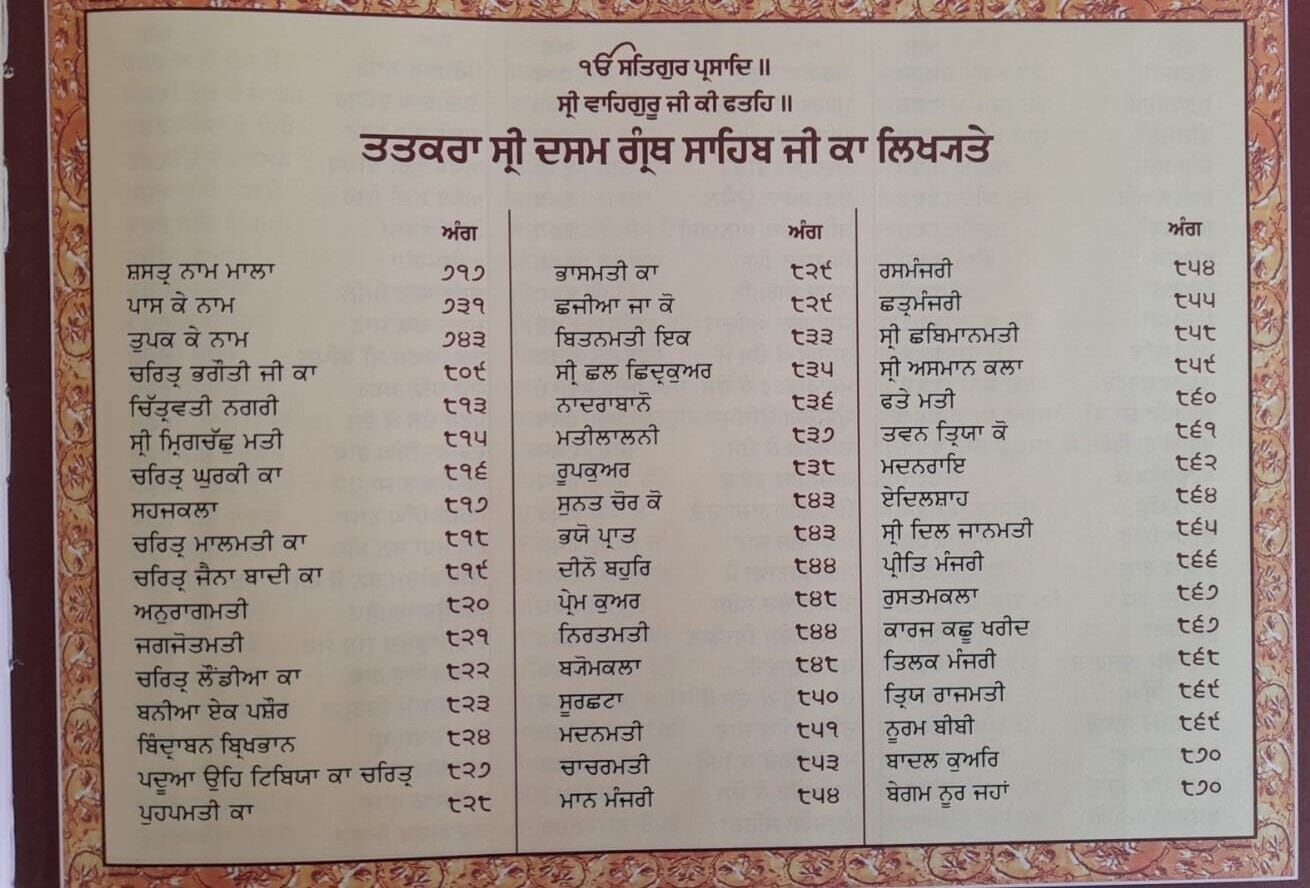 ੴ ਸਤਿਗੁਰ ਪ੍ਰਸਾਦਿ॥
ਸ੍ਰੀ ਵਾਹਿਗੁਰੂ ਜੀ ਕੀ ਫਤਹਿ॥
ਤਤਕਰਾ ਸ੍ਰੀ ਦਸਮ ਗ੍ਰੰਥ ਸਾਹਿਬ ਜੀ ਕਾ ਲਿਖ੍ਯਤੇ
ਅੰਗ
ਸ਼ਸਤ੍ਰ ਨਾਮ ਮਾਲਾ ੭੧੭
ਪਾਸ ਕੇ ਨਾਮ ੭੩੧
ਤੁਪਕ ਕੇ ਨਾਮ ੭੪੩
ਚਰਿਤ੍ਰ ਭਗੌਤੀ ਜੀ ਕਾ ੮੦੯
ਚਿੱਤ੍ਰਵਤੀ ਨਗਰੀ ੮੧੩
ਸ੍ਰੀ ਮ੍ਰਿਗਚੱਛੁ ਮਤੀ ੮੧੫
ਚਰਿਤ੍ਰ ਘੁਰਕੀ ਕਾ ੮੧੬
ਸਹਜਕਲਾ ੮੧੭
ਚਰਿਤ੍ਰ ਮਾਲਮਤੀ ਕਾ ੮੧੮
ਚਰਿਤ੍ਰ ਜੈਨਾ ਬਾਦੀ ਕਾ ੮੧੯
ਅਨੁਰਾਗਮਤੀ ੮੨੦
ਜਗਜੋਤਮਤੀ ੮੨੧
ਚਰਿਤ੍ਰ ਲੌਂਡੀਆ ਕਾ ੮੨੨
ਬਨੀਆ ਏਕ ਪਸ਼ੌਰ ੮੨੩
ਬਿੰਦ੍ਰਾਬਨ ਬ੍ਰਿਖਭਾਨ ੮੨੪
ਪਦੂਆ ਉਹਿ ਟਿਬਿਯਾ ਕਾ ਚਰਿਤ੍ਰ ੮੨੭
ਪੁਹਪਮਤੀ ਕਾ ੮੨੮
ਅੰਗ
ਭਾਸਮਤੀ ਕਾ ੮੨੯
ਛਜੀਆ ਜਾ ਕੋ ੮੨੯
ਬਿਤਨਮਤੀ ਇਕ ੮੩੩
ਸ੍ਰੀ ਛਲ ਛਿਦ੍ਰਕੁਅਰ ੮੩੫
ਨਾਦਰਾਬਾਨੋ ੮੩੬
ਮਤੀਲਾਲਨੀ ੮੩੭
ਰੂਪਕੁਅਰ ੮੩੮
ਸੁਨਤ ਚੋਰ ਕੋ ੮੪੩
ਭਯੋ ਪ੍ਰਾਤ ੮੪੩
ਦੀਨੋ ਬਹੁਰਿ ੮੪੪
ਪ੍ਰੇਮ ਕੁਅਰ ੮੪੮
ਨਿਰਤਮਤੀ ੮੪੪
ਬ੍ਯੋਮਕਲਾ ੮੪੮
ਸੂਰਛਟਾ ੮੫੦
ਮਦਨਮਤੀ ੮੫੧
ਚਾਚਰਮਤੀ ੮੫੩
ਮਾਨ ਮੰਜਰੀ ੮੫੪
ਅੰਗ
ਰਸਮੰਜਰੀ ੮੫੪
ਛਤ੍ਰਮੰਜਰੀ ੮੫੫
ਸ੍ਰੀ ਛਬਿਮਾਨਮਤੀ ੮੫੮
ਸ੍ਰੀ ਅਸਮਾਨ ਕਲਾ ੮੫੯
ਫਤੇ ਮਤੀ ੮੬੦
ਤਵਨ ਤ੍ਰਿਯਾ ਕੋ ੮੬੧
ਮਦਨਰਾਇ ੮੬੨
ਏਦਿਲਸ਼ਾਹ ੮੬੪
ਸ੍ਰੀ ਦਿਲ ਜਾਨਮਤੀ ੮੬੫
ਪ੍ਰੀਤਿ ਮੰਜਰੀ ੮੬੬
ਰੁਸਤਮਕਲਾ ੮੬੭
ਕਾਰਜ ਕਛੂ ਖਰੀਦ ੮੬੭
ਤਿਲਕ ਮੰਜਰੀ ੮੬੮
ਤ੍ਰਿਯ ਰਾਜਮਤੀ ੮੬੯
ਨੂਰਮ ਬੀਬੀ ੮੬੯
ਬਾਦਲ ਕੁਅਰਿ ੮੭੦
ਬੇਗਮ ਨੂਰ ਜਹਾਂ ੮੭੦